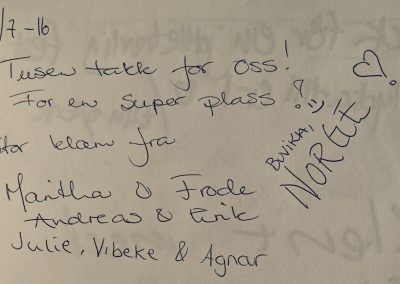 /7-16
Tusen takk for oss!
For en super plass!
Stor klem fra
Maritha & Frode
Andreas & Eirik
Julie, Vibeke & Agnar
BUVIKA,
NORGE